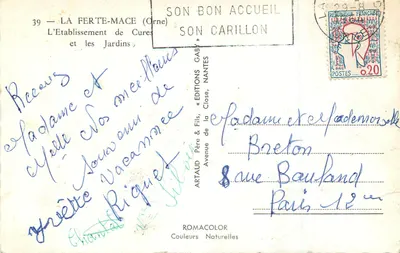 39 — LA FERTE-MACE (Orne)
L'Etablissement de Cures
et les Jardins
SON BON ACCUEIL
SON CARILLON
POSTES 0,20
Recevez
Madame et
Melle Nos meilleurs
souvenir de
Vacances
Riquet
Chantal
ARTAUD Père & Fils, "EDITIONS GABY"
Avenue de la Close, NANTES
Madame et Mademoiselle
Breton
8 rue Bauland
Paris 12me
ROMACOLOR
Couleurs Naturelles